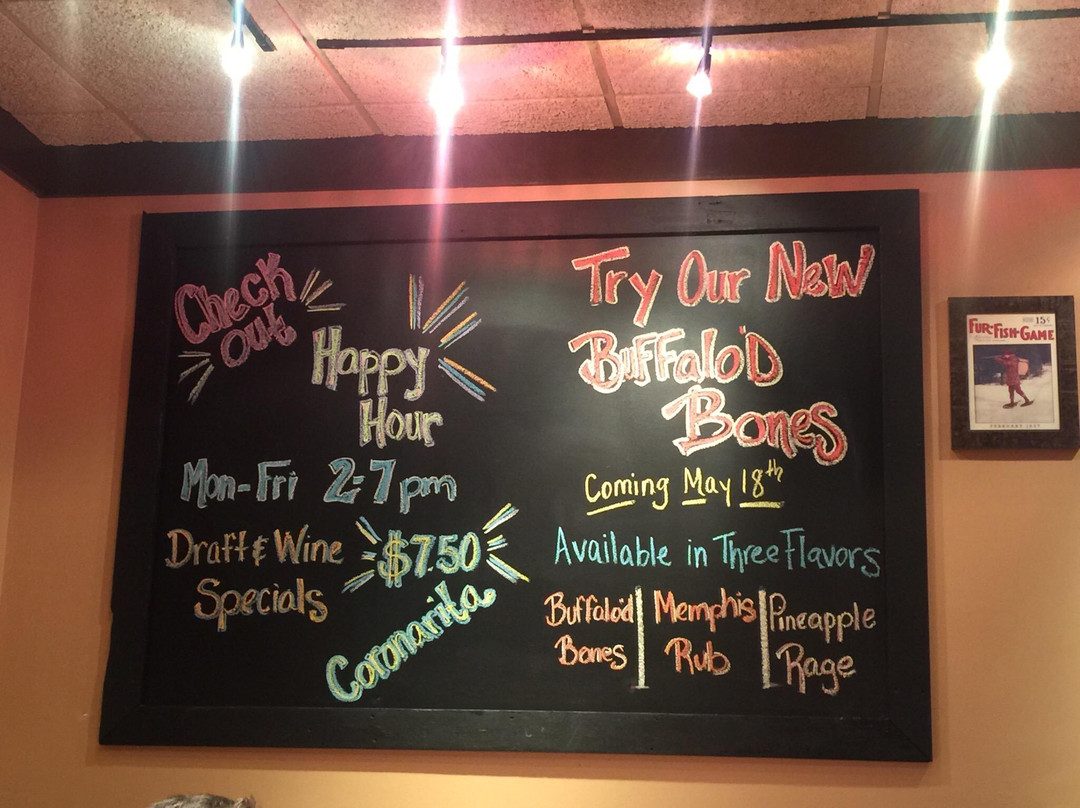 Check
out
Happy
Hour
Mon-Fri 2-7pm
Draft & Wine
Specials
$7.50
Coronarita
Try Our New
Buffalo'd
Bones
Coming May 18th
Available in Three Flavors
Buffalo'd
Bones
Memphis
Rub
Pineapple
Rage
15¢
FUR-FISH-GAME